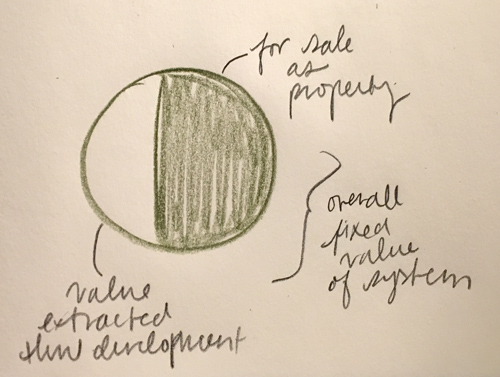 for sale
as
property
overall
fixed
value
of system
value
extracted
thru development